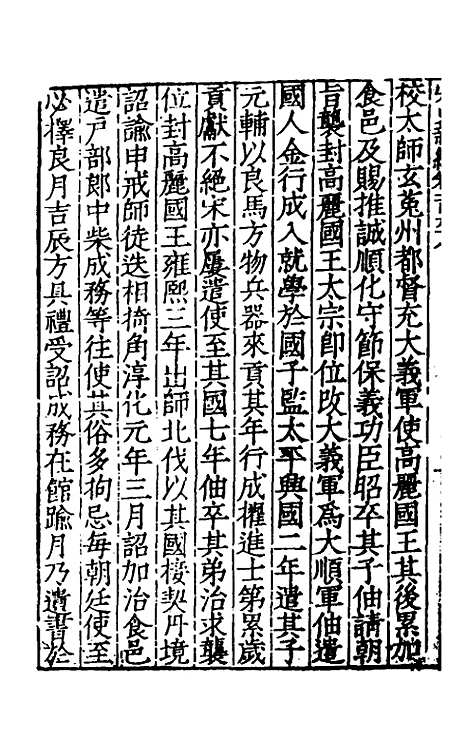 校太師玄菟州都督充大義軍使高麗國王其後累加
食邑及賜推誠順化守節保義功臣昭卒其子伷請朝
旨襲封高麗國王太宗即位改大義軍爲大順軍伷遣
國人金行成入就學於國子監太平興國二年遣其子
元輔以良馬方物兵器來貢其年行成擢進士第累歲
貢獻不絕宋亦屢遣使至其國七年伷卒其弟治求襲
位封高麗國王雍熙三年出師北伐以其國接契丹境
詔諭申戒師徒迭相掎角淳化元年三月詔加治食邑
遣戶部郎中柴成務等往使其俗多拘忌每朝廷使至
必擇良月吉辰方具禮受詔成務在館踰月乃遺書於